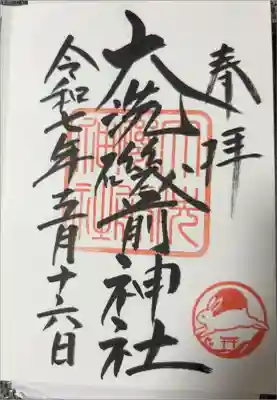 奉拝
大洗磯前神社
令和七年五月十六日